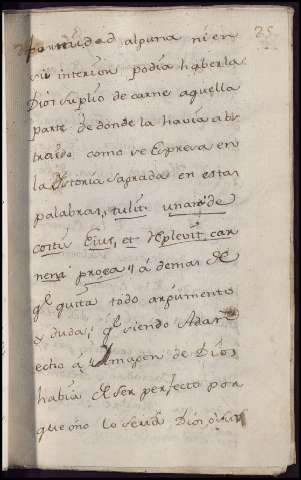 25
formidad alguna ni en
su interior podia haberla
Dios suplio de carne aquella
parte de donde la havia abs
traido como se expresa en
la Istoria Sagrada en estas
palabras, tulit unam de
costis Eius, et Replevit car
nem pro ea, á demas de
qe quita todo argumento
y duda, qe siendo Adan
echo á imagen de Dios
habia de ser perfecto por
que no lo seria Dios